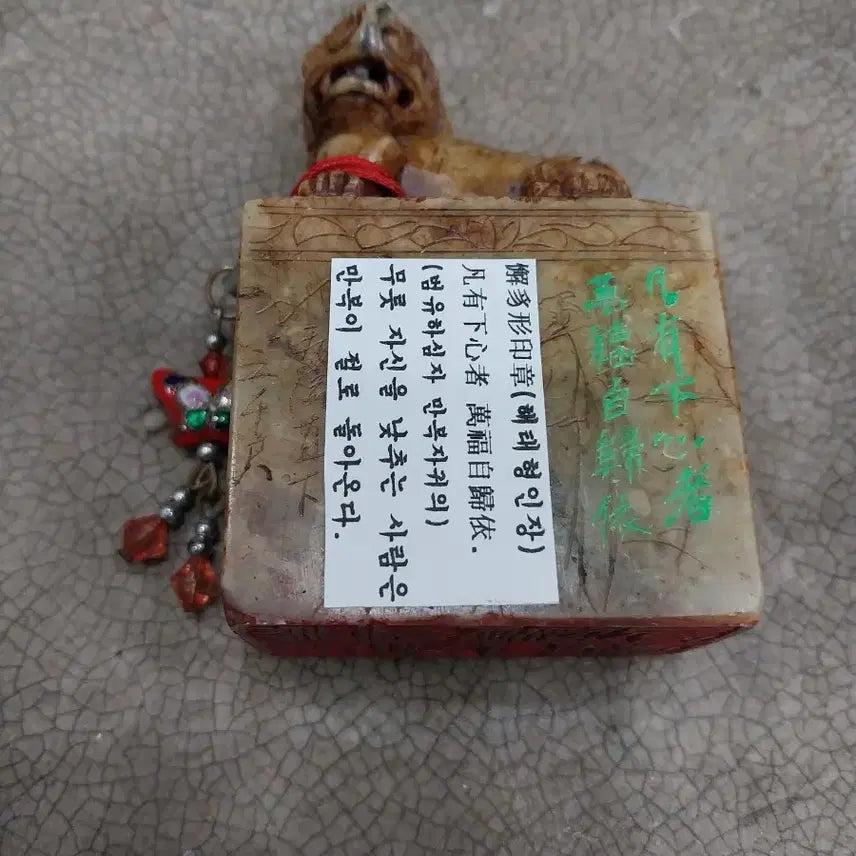 獬豸形印章(해태형인장)
凡有下心者 萬福自歸依.
(범유하심자 만복자귀의)
무릇 자신을 낮추는 사람은
만복이 절로 돌아온다.
凡有下心者
萬福自歸依